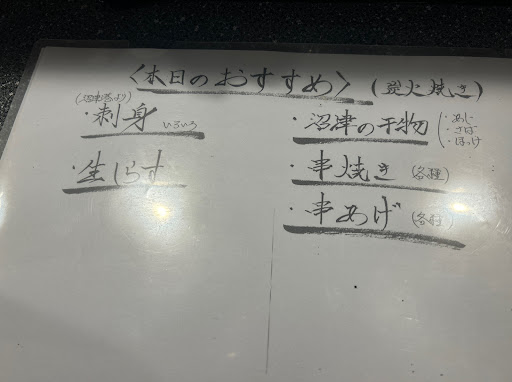 〈本日のおすすめ〉
(炭火焼き)
・刺身 いろいろ
・生しらす
・沼津の干物
・あじ
・さば
・ほっけ
・串焼き (各種)
・串あげ (各種)